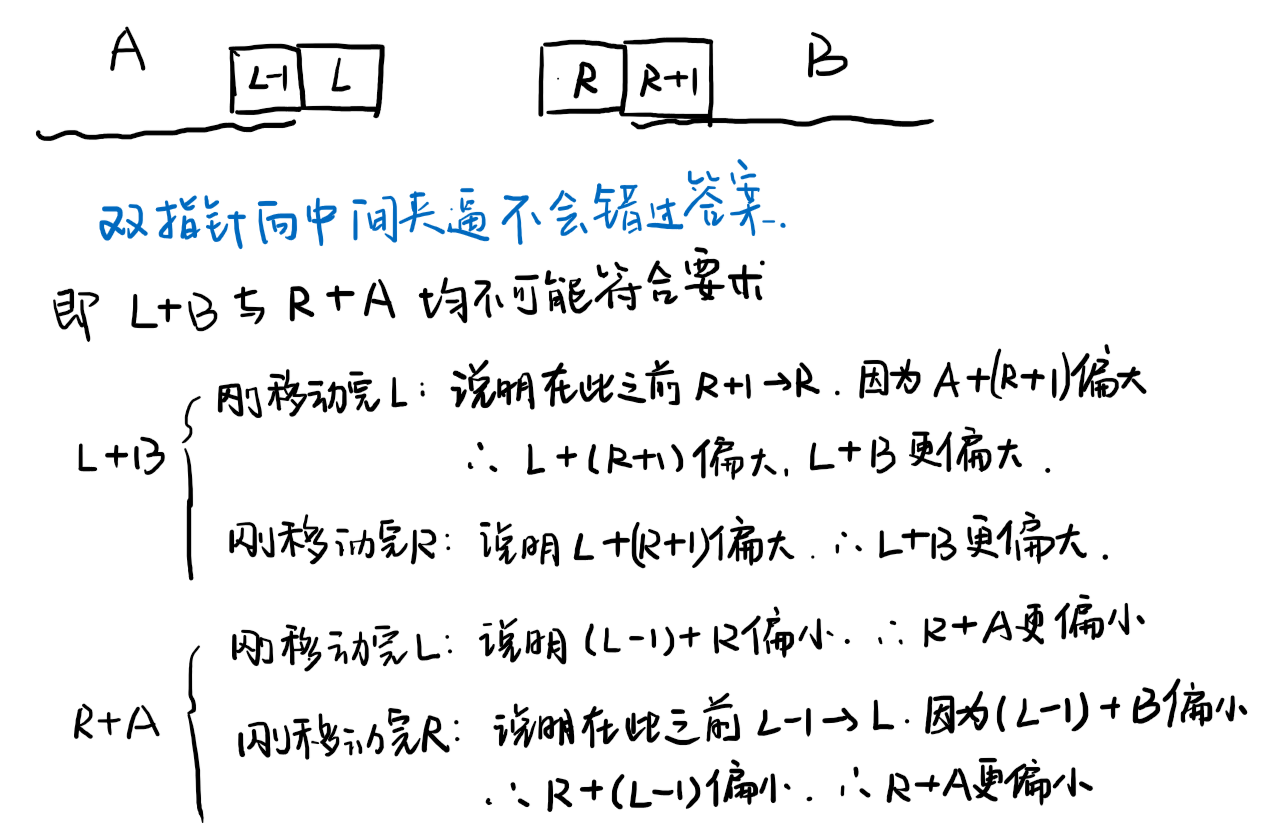 A L-1 L R R+1 B
双指针向中间夹逼不会错过答案.
即 L+B 与 R+A 均不可能符合要求
刚移动完L: 说明在此之前 R+1→R. 因为 A+(R+1)偏大
L+B
∴ L+(R+1)偏大, L+B 更偏大.
刚移动完R: 说明 L+(R+1)偏大. ∴ L+B更偏大.
刚移动完L: 说明 (L-1)+R偏小. ∴ R+A更偏小
R+A
刚移动完R: 说明在此之前 L-1→L. 因为(L-1)+B偏小
∴ R+(L-1)偏小. ∴ R+A更偏小